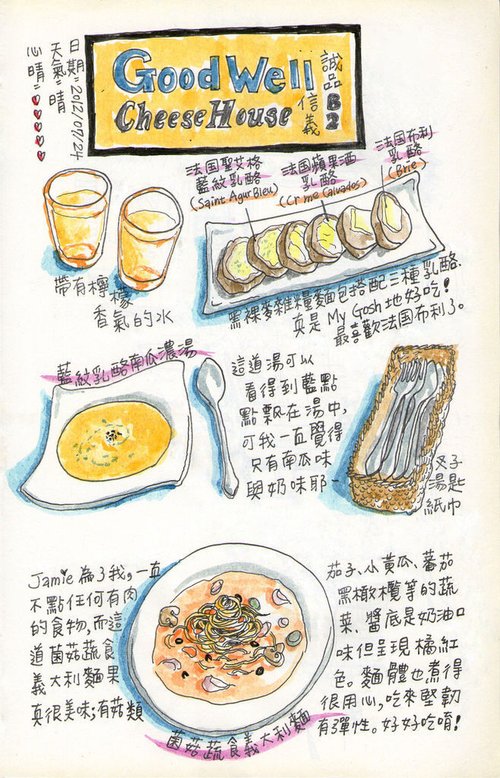 日期=2012/07/24
天氣=晴
心晴=
Good Well
Cheese House
誠品
信義
B2
法国聖艾格
藍紋乳酪
(Saint Agur Bleu)
法国蘋果酒
乳酪
(Cr me Calvados)
法国布利
乳酪
(Brie)
帶有檸檬
香氣的水
黑裸麥雜糧麵包搭配三種乳酪.
真是 My Gosh 地好吃!
最喜歡法国布利了。
藍紋乳酪南瓜濃湯
這道湯可以
看得到藍點
點飄在湯中,
可我一直覺得
只有南瓜味
與奶味耶~
叉子
湯匙
紙巾
Jamie 為了我,一直
不點任何有肉
的食物,而這
道菌菇蔬食
義大利麵果
真很美味;有菇類
茄子、小黃瓜、蕃茄
黑橄欖等的蔬
菜、醬底是奶油口
味但呈現橘紅
色。麵體也煮得
很用心,吃來堅韌
有彈性。好好吃唷!
菌菇蔬食義大利麵